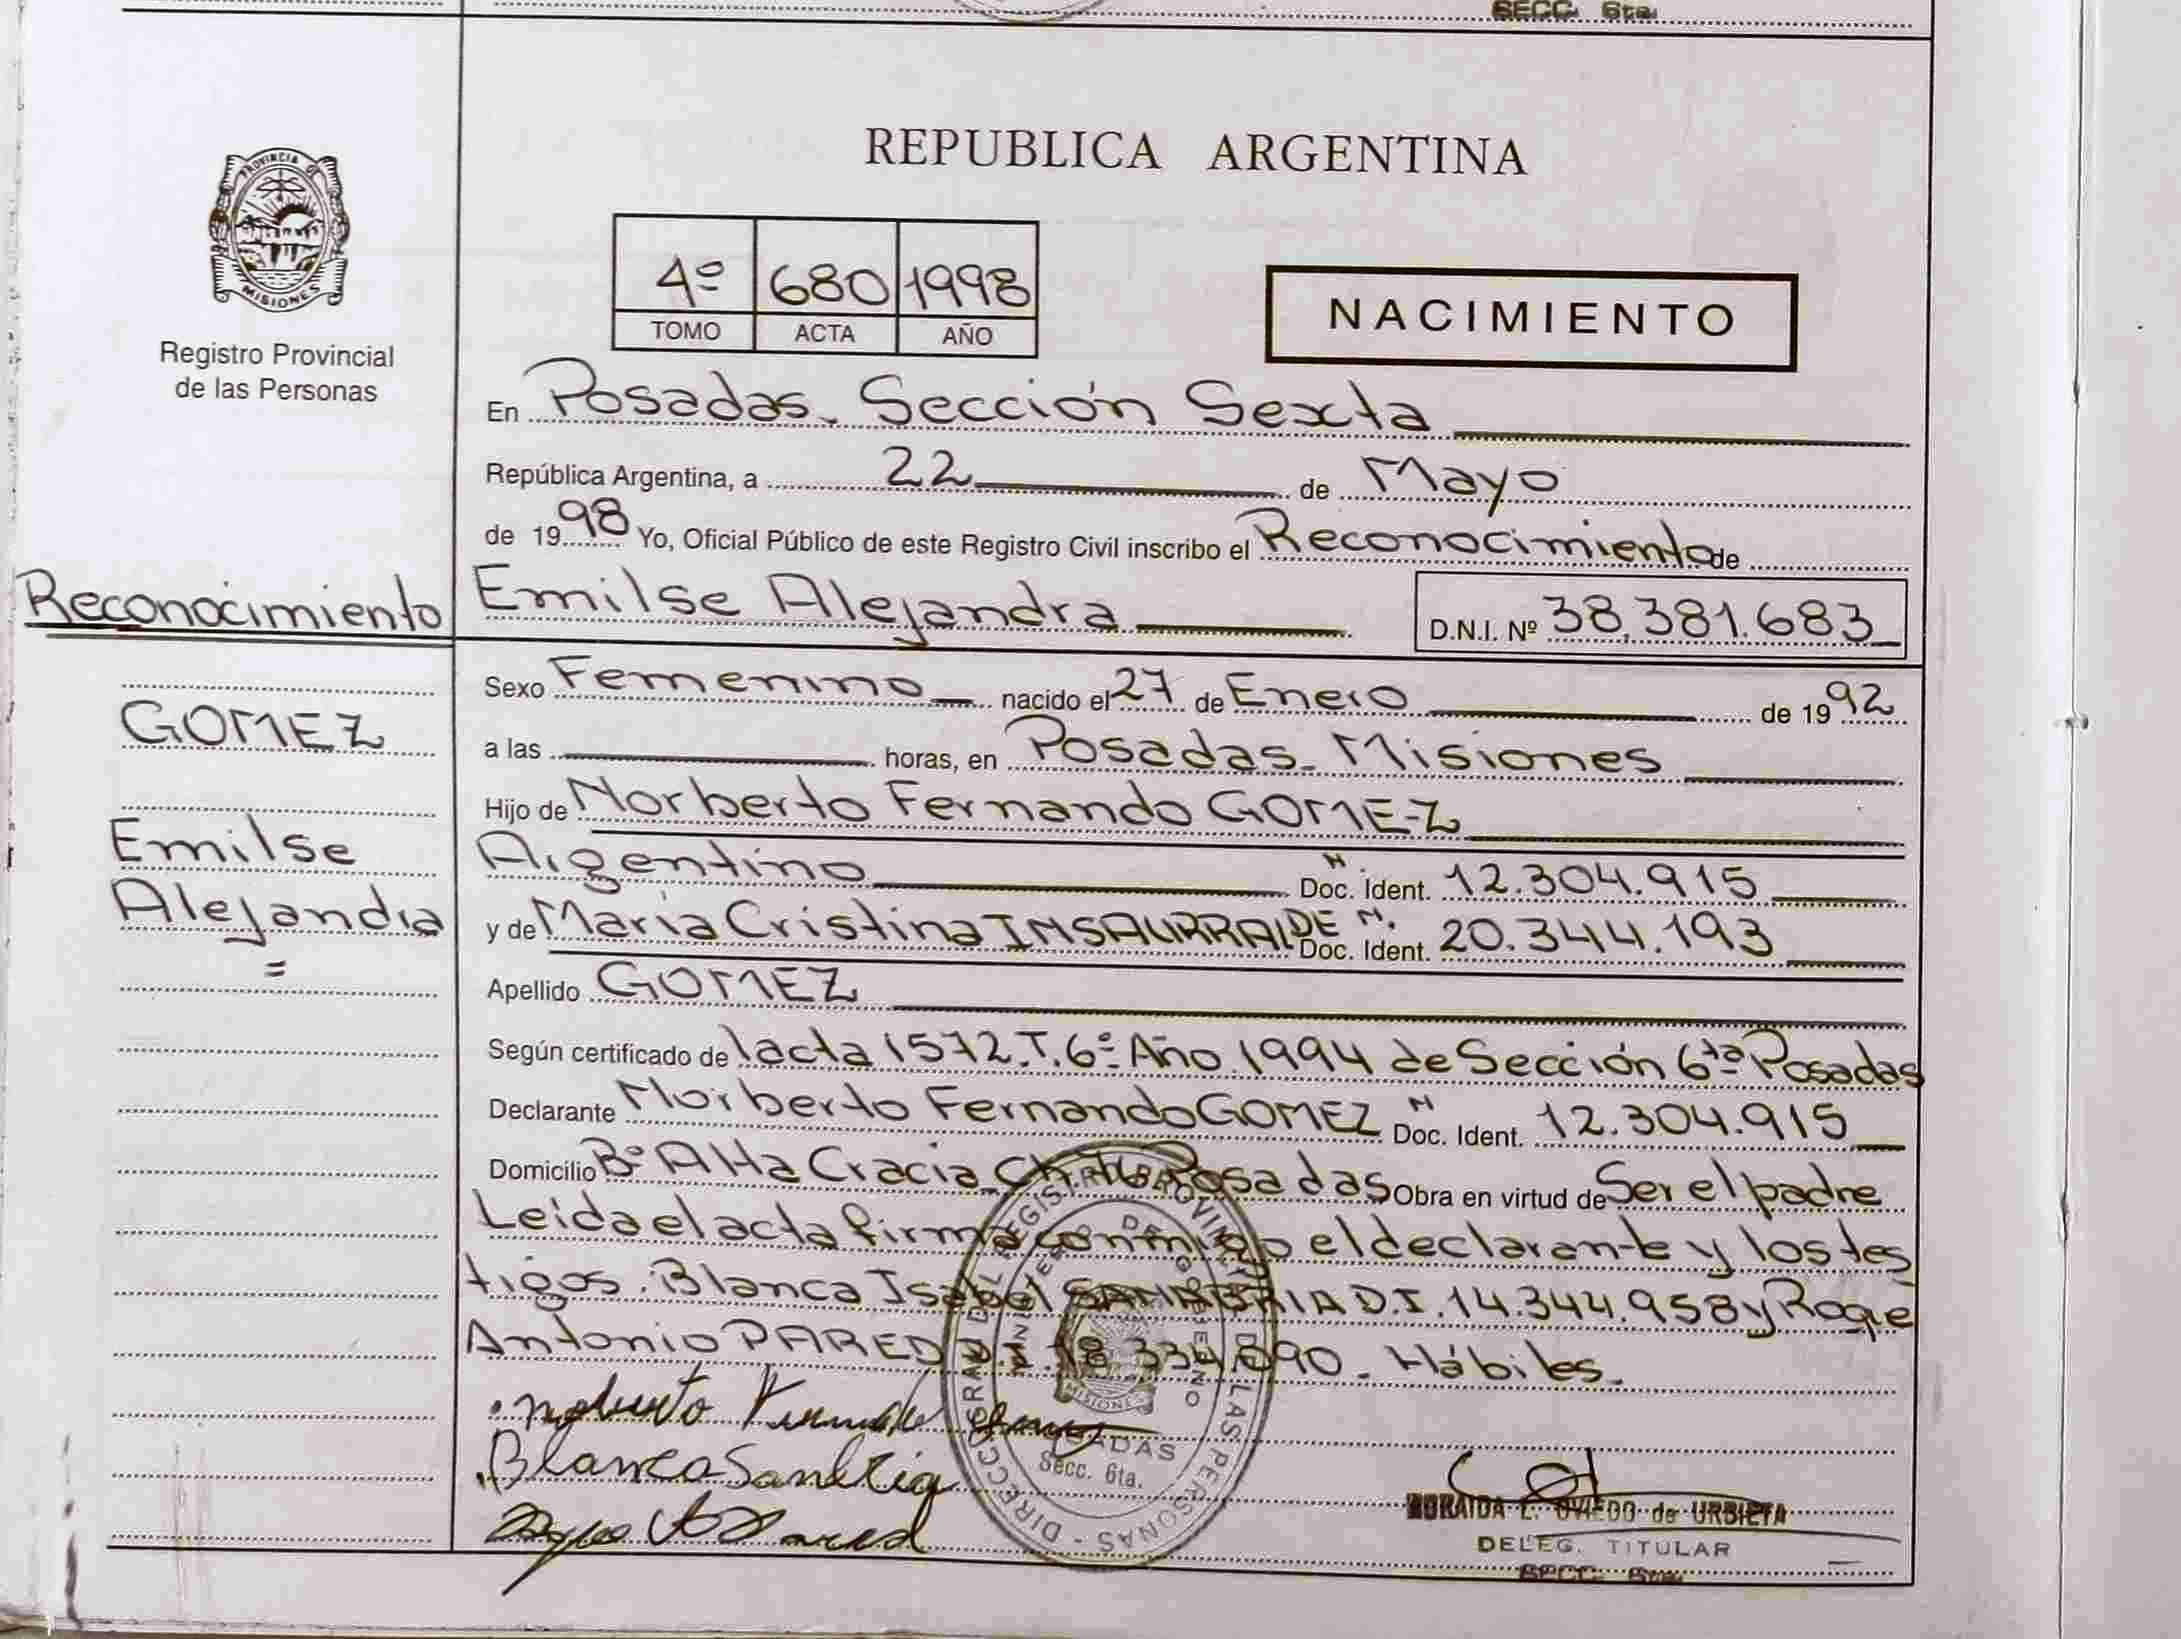 SECC. 6ta.
PROVINCIA DE
MISIONES
Registro Provincial
de las Personas
REPUBLICA ARGENTINA
4º 680 1998
TOMO ACTA AÑO
NACIMIENTO
En Posadas. Sección Sexta
República Argentina, a 22 de Mayo
de 1998 Yo, Oficial Público de este Registro Civil inscribo el Reconocimiento de
Emilse Alejandra D.N.I. Nº 38.381.683
Reconocimiento
GOMEZ
Emilse
Alejandra
=
Sexo Femenino nacido el 27 de Enero de 1992
a las horas, en Posadas. Misiones
Hijo de Norberto Fernando GOMEZ
Argentino M Doc. Ident. 12.304.915
y de María Cristina INSAURRALDE M. Doc. Ident. 20.344.193
Apellido GOMEZ
Según certificado de lacta 1572.T.6º Año.1994 de Sección 6ta Posadas
Declarante Norberto Fernando GOMEZ M Doc. Ident. 12.304.915
Domicilio Bº Alta Gracia Posadas Obra en virtud de Ser el padre
Leída el acta firma conmigo el declarante y los tes
tigos: Blanca Isabel SANABRIA D.I. 14.344.958 y Roque
Antonio PARED D.I. 18.334.690. Hábiles.
Norberto Fernando Gomez
Blanca Sanabria
DIRECC. GRAL. DEL REGISTRO PROVINCIAL DE LAS PERSONAS
MINISTERIO DE GOBIERNO
MISIONES
POSADAS
Secc. 6ta.
ZORAIDA E. OVIEDO de URBIETA
DELEG. TITULAR
SECC. 6ta.